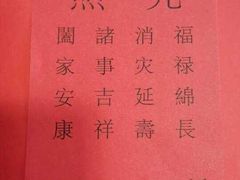 福禄綿長
消灾延壽
諸事吉祥
闔家安康